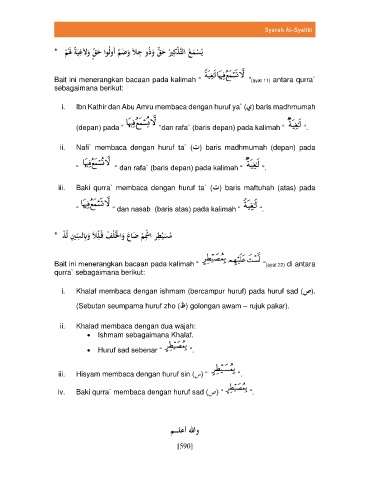 Syarah Al-Syatibi
Bait ini menerangkan bacaan pada kalimah " لَّا تَسْمَعُ فِيهَا لَٰغِيَةً "(ayat 11) antara qurra`
sebagaimana berikut:
i. Ibn Kathir dan Abu Amru membaca dengan huruf ya` (ي) baris madhmumah
(depan) pada " لَّا يُسْمَعُ فِيهَا "dan rafa` (baris depan) pada kalimah " لَٰغِيَةٌ ".
ii. Nafi` membaca dengan huruf ta` (ت) baris madhmumah (depan) pada
" لَّا تُسْمَعُ فِيهَا " dan rafa` (baris depan) pada kalimah " لَٰغِيَةٌ ".
iii. Baki qurra` membaca dengan huruf ta` (ت) baris maftuhah (atas) pada
" لَّا تَسْمَعُ فِيهَا " dan nasab (baris atas) pada kalimah " لَٰغِيَةً ".
Bait ini menerangkan bacaan pada kalimah " لَّسْتَ عَلَيْهِم بِمُصَيْطِرٍ "(ayat 22) di antara
qurra` sebagaimana berikut:
i. Khalaf membaca dengan ishmam (bercampur huruf) pada huruf sad (ص).
(Sebutan seumpama huruf zho (ظ) golongan awam – rujuk pakar).
ii. Khalad membaca dengan dua wajah:
• Ishmam sebagaimana Khalaf.
• Huruf sad sebenar " بِمُصَيْطِرٍ ".
iii. Hisyam membaca dengan huruf sin (س) " بِمُسَيْطِرٍ ".
iv. Baki qurra` membaca dengan huruf sad (ص) " بِمُصَيْطِرٍ ".
والله أعلم
[590]